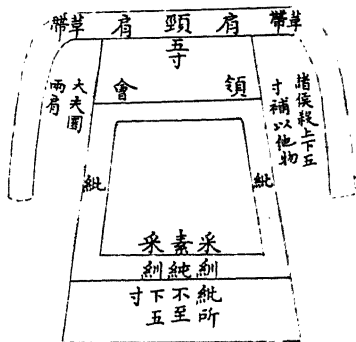 革帶肩頸肩革帶
五寸
領會
諸侯殺上下五
寸補以他物
大夫圜
兩肩
紕
紕
采素采
紃純紃
紕所
不至
下五
寸